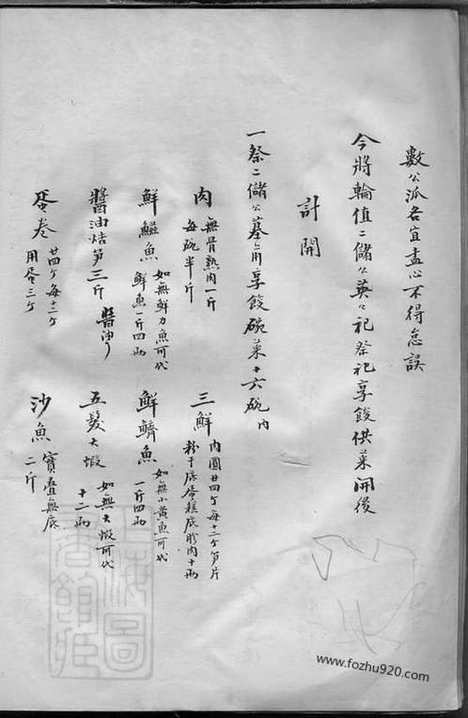 數公派各宜盡心不得怠誤
今將輪值二儲公英公祀祭祀享餕供菜開後
計開
一祭二儲公墓前享餕碗菜十六碗內
肉 無骨熟肉一斤 每碗半斤
三鮮 肉圓廿四个每十二个笋片 粉干底蛋糕底肉十兩
鮮鰳魚 如無鮮力魚可代 鮮魚一斤四兩
鮮魚 如無小黃魚可代 一斤四兩
醬油焅笋三斤 醬油
五髮大蝦 如無大蝦可代 十二兩
蛋卷 廿四个每十二个 用蛋三个
沙魚二斤 實疊無底
www.fozhu920.com